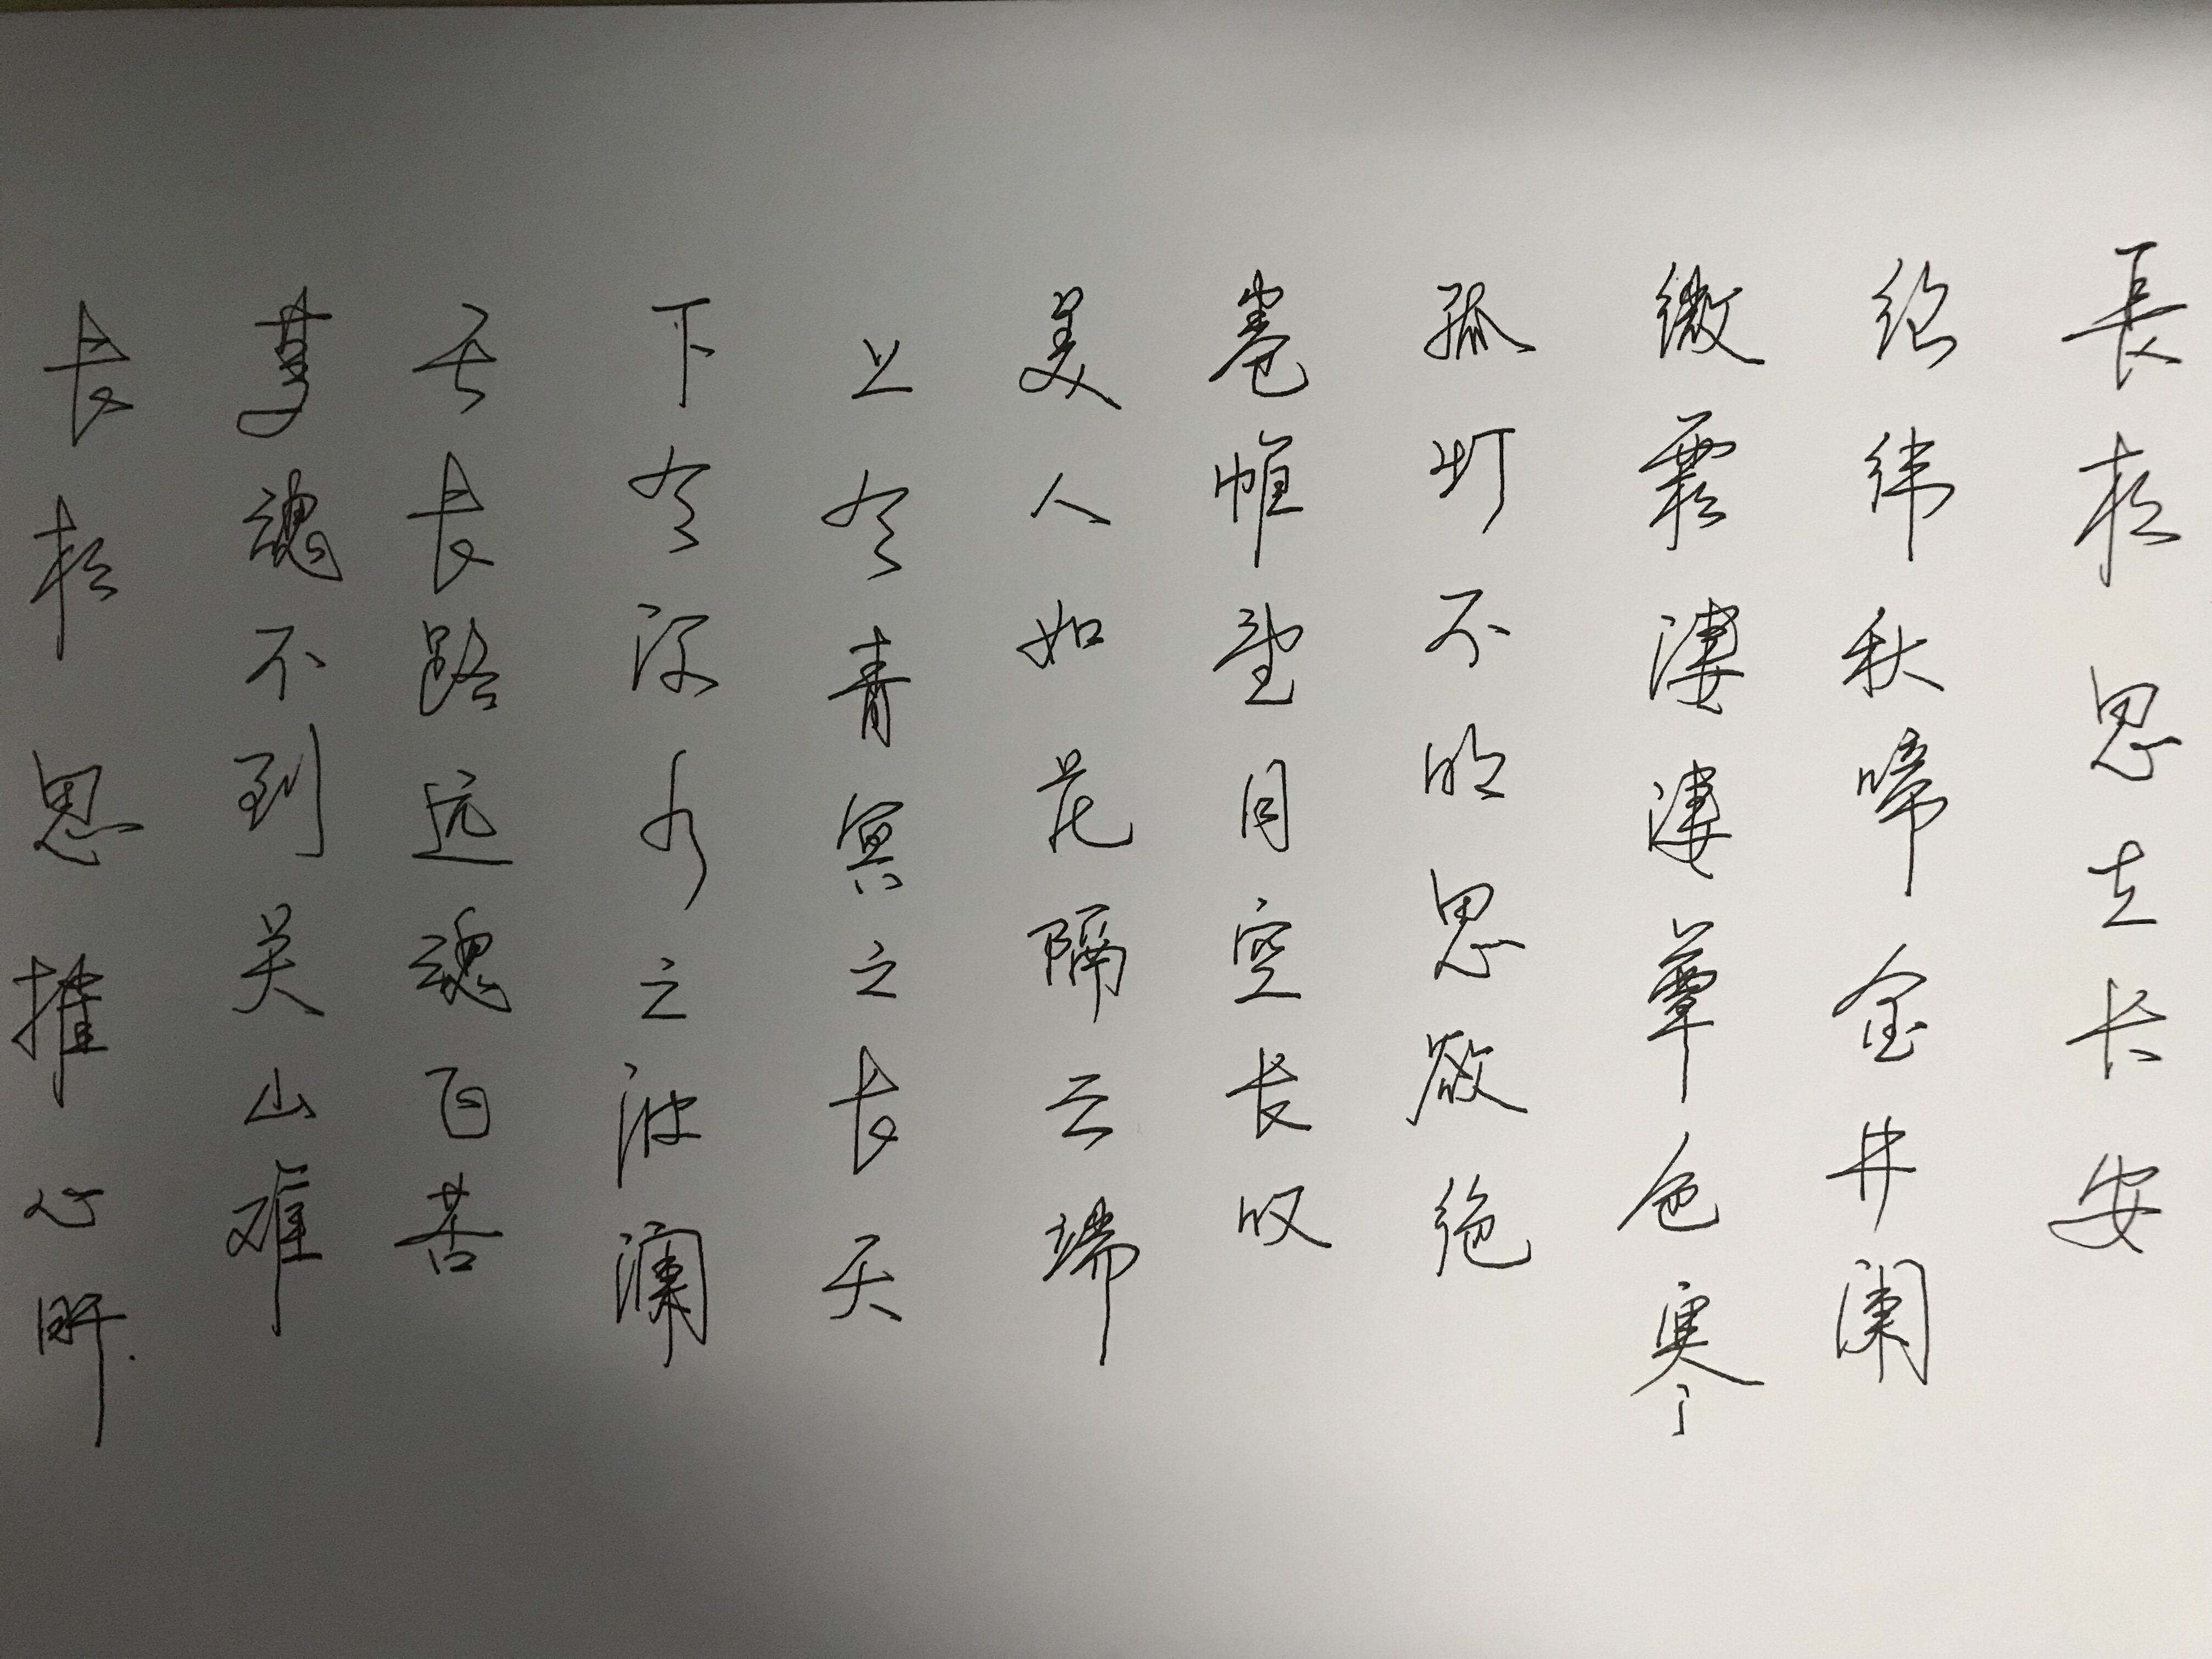 長相思在长安
络纬秋啼金井阑
微霜淒淒簟色寒
孤灯不明思欲绝
卷帷望月空长叹
美人如花隔云端
上有青冥之长天
下有渌水之波澜
天长路远魂飞苦
梦魂不到关山难
长相思摧心肝.